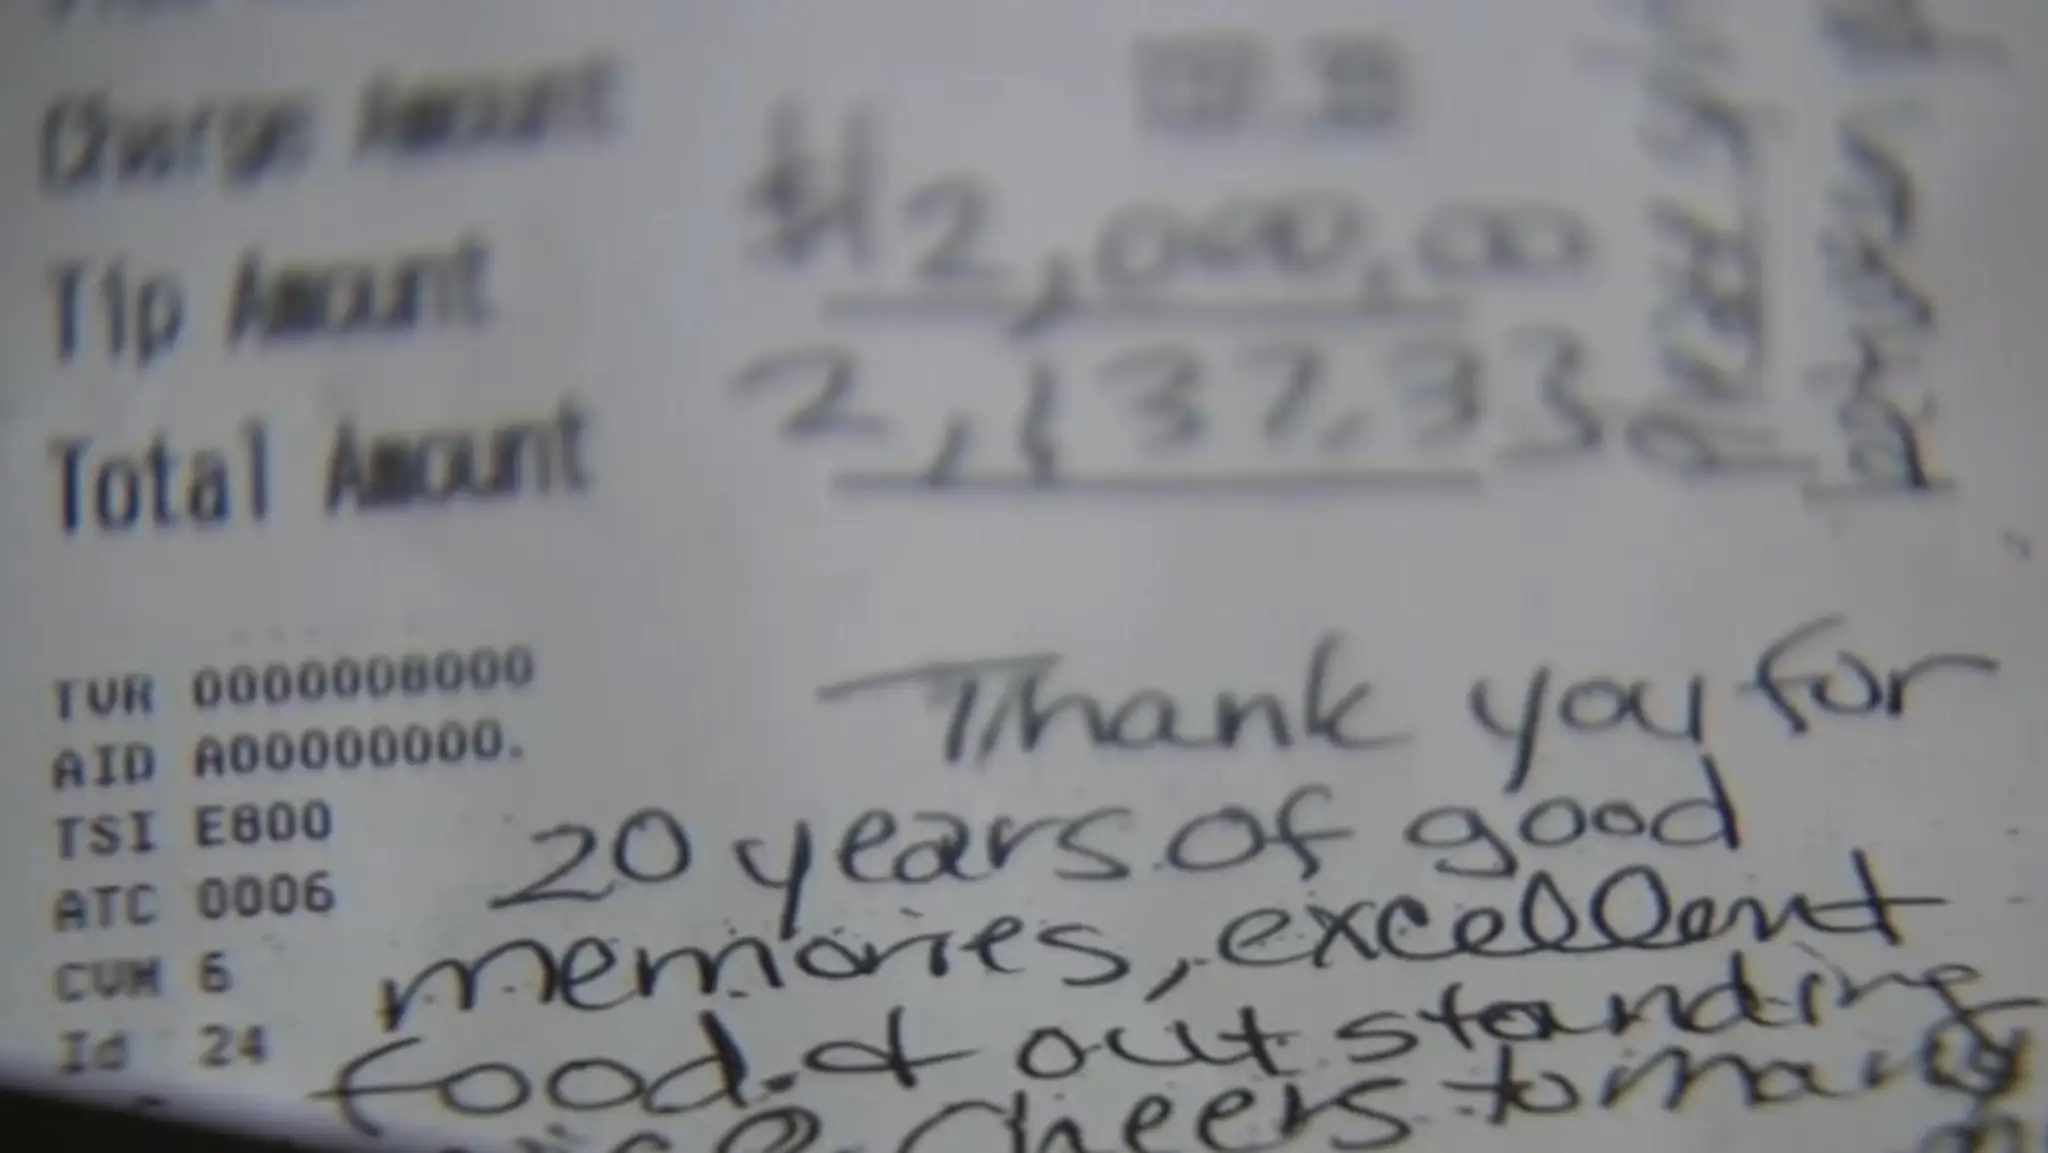 Charge Amount
Tip Amount $2,000.00
Total Amount 2,137.33
TVR 0000008000
AID A00000000.
TSI E800
ATC 0006
CVM 6
Id 24
Thank you for
20 years of good
memories, excellent
food & outstanding
Cheers to many